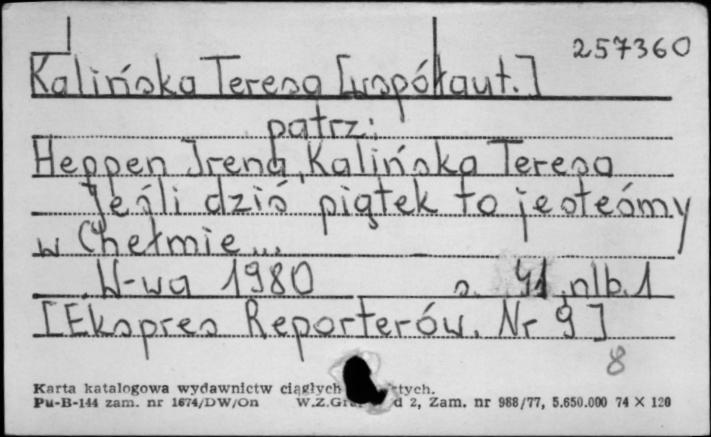 257360
Kalińska Teresa [współaut.]
patrz:
Heppen Irena, Kalińska Teresa
Jeśli dziś piątek to jesteśmy
w Chełmie...
W-wa 1980 s. 41, nlb. 1
[Ekspres Reporterów. Nr 9]
8
Karta katalogowa wydawnictw ciągłych
Pu-B-144 zam. nr 1674/DW/On W.Z.Graf. d 2, Zam. nr 988/77, 5.650.000 74 × 120